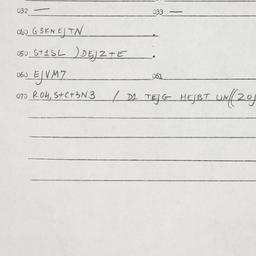 032 — 033 —
040 G3KNEJTN .
050 S+1SL ) DEJZ+E .
060 EJVM7 061
070 R04, S+C+3N3 / D1 TEJG HEJBT UN((20J